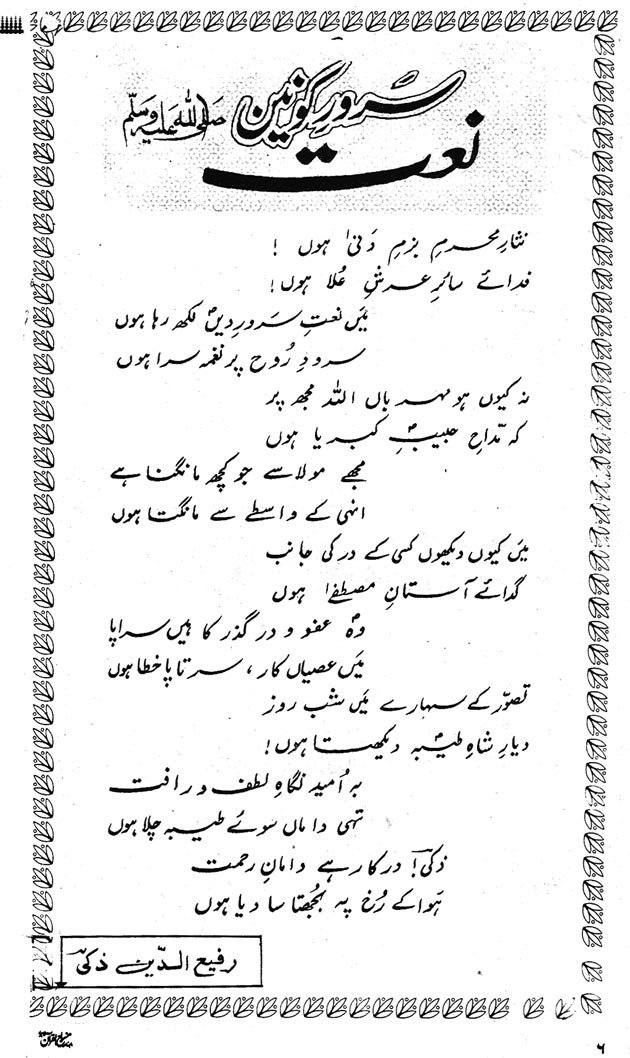 نعت
سرورِ کونین صلی اللہ علیہ وسلم
نثارِ محرمِ بزمِ دَنیٰ ہوں !
فدائے سائرِ عرشِ عُلا ہوں !
مَیں نعتِ سرورِ دیںؐ لکھ رہا ہوں
سرودِ رُوح پر نغمہ سرا ہوں
نہ کیوں ہو مہرباں اللہ مجھ پر
کہ مدّاحِ حبیبِؐ کبریا ہوں
مجھے مولا سے جو کچھ مانگنا ہے
انہی کے واسطے سے مانگتا ہوں
مَیں کیوں دیکھوں کسی کے در کی جانب
گدائے آستانِ مصطفےٰؐ ہوں
وہؐ عفو و درگذر کا ہیں سراپا
مَیں عصیاں کار ، سرتاپا خطا ہوں
تصوّر کے سہارے مَیں شب روز
دیارِ شاہِ طیبہؐ دیکھتا ہوں !
بہ اُمید نگاہِ لطف و رافت
تہی داماں سوئے طیبہ چلا ہوں
ذکیؔ ! درکار ہے دامانِ رحمت
ہَوا کے رُخ پہ بُجھتا سا دیا ہوں
رفیع الدّین ذکیؔ
۶